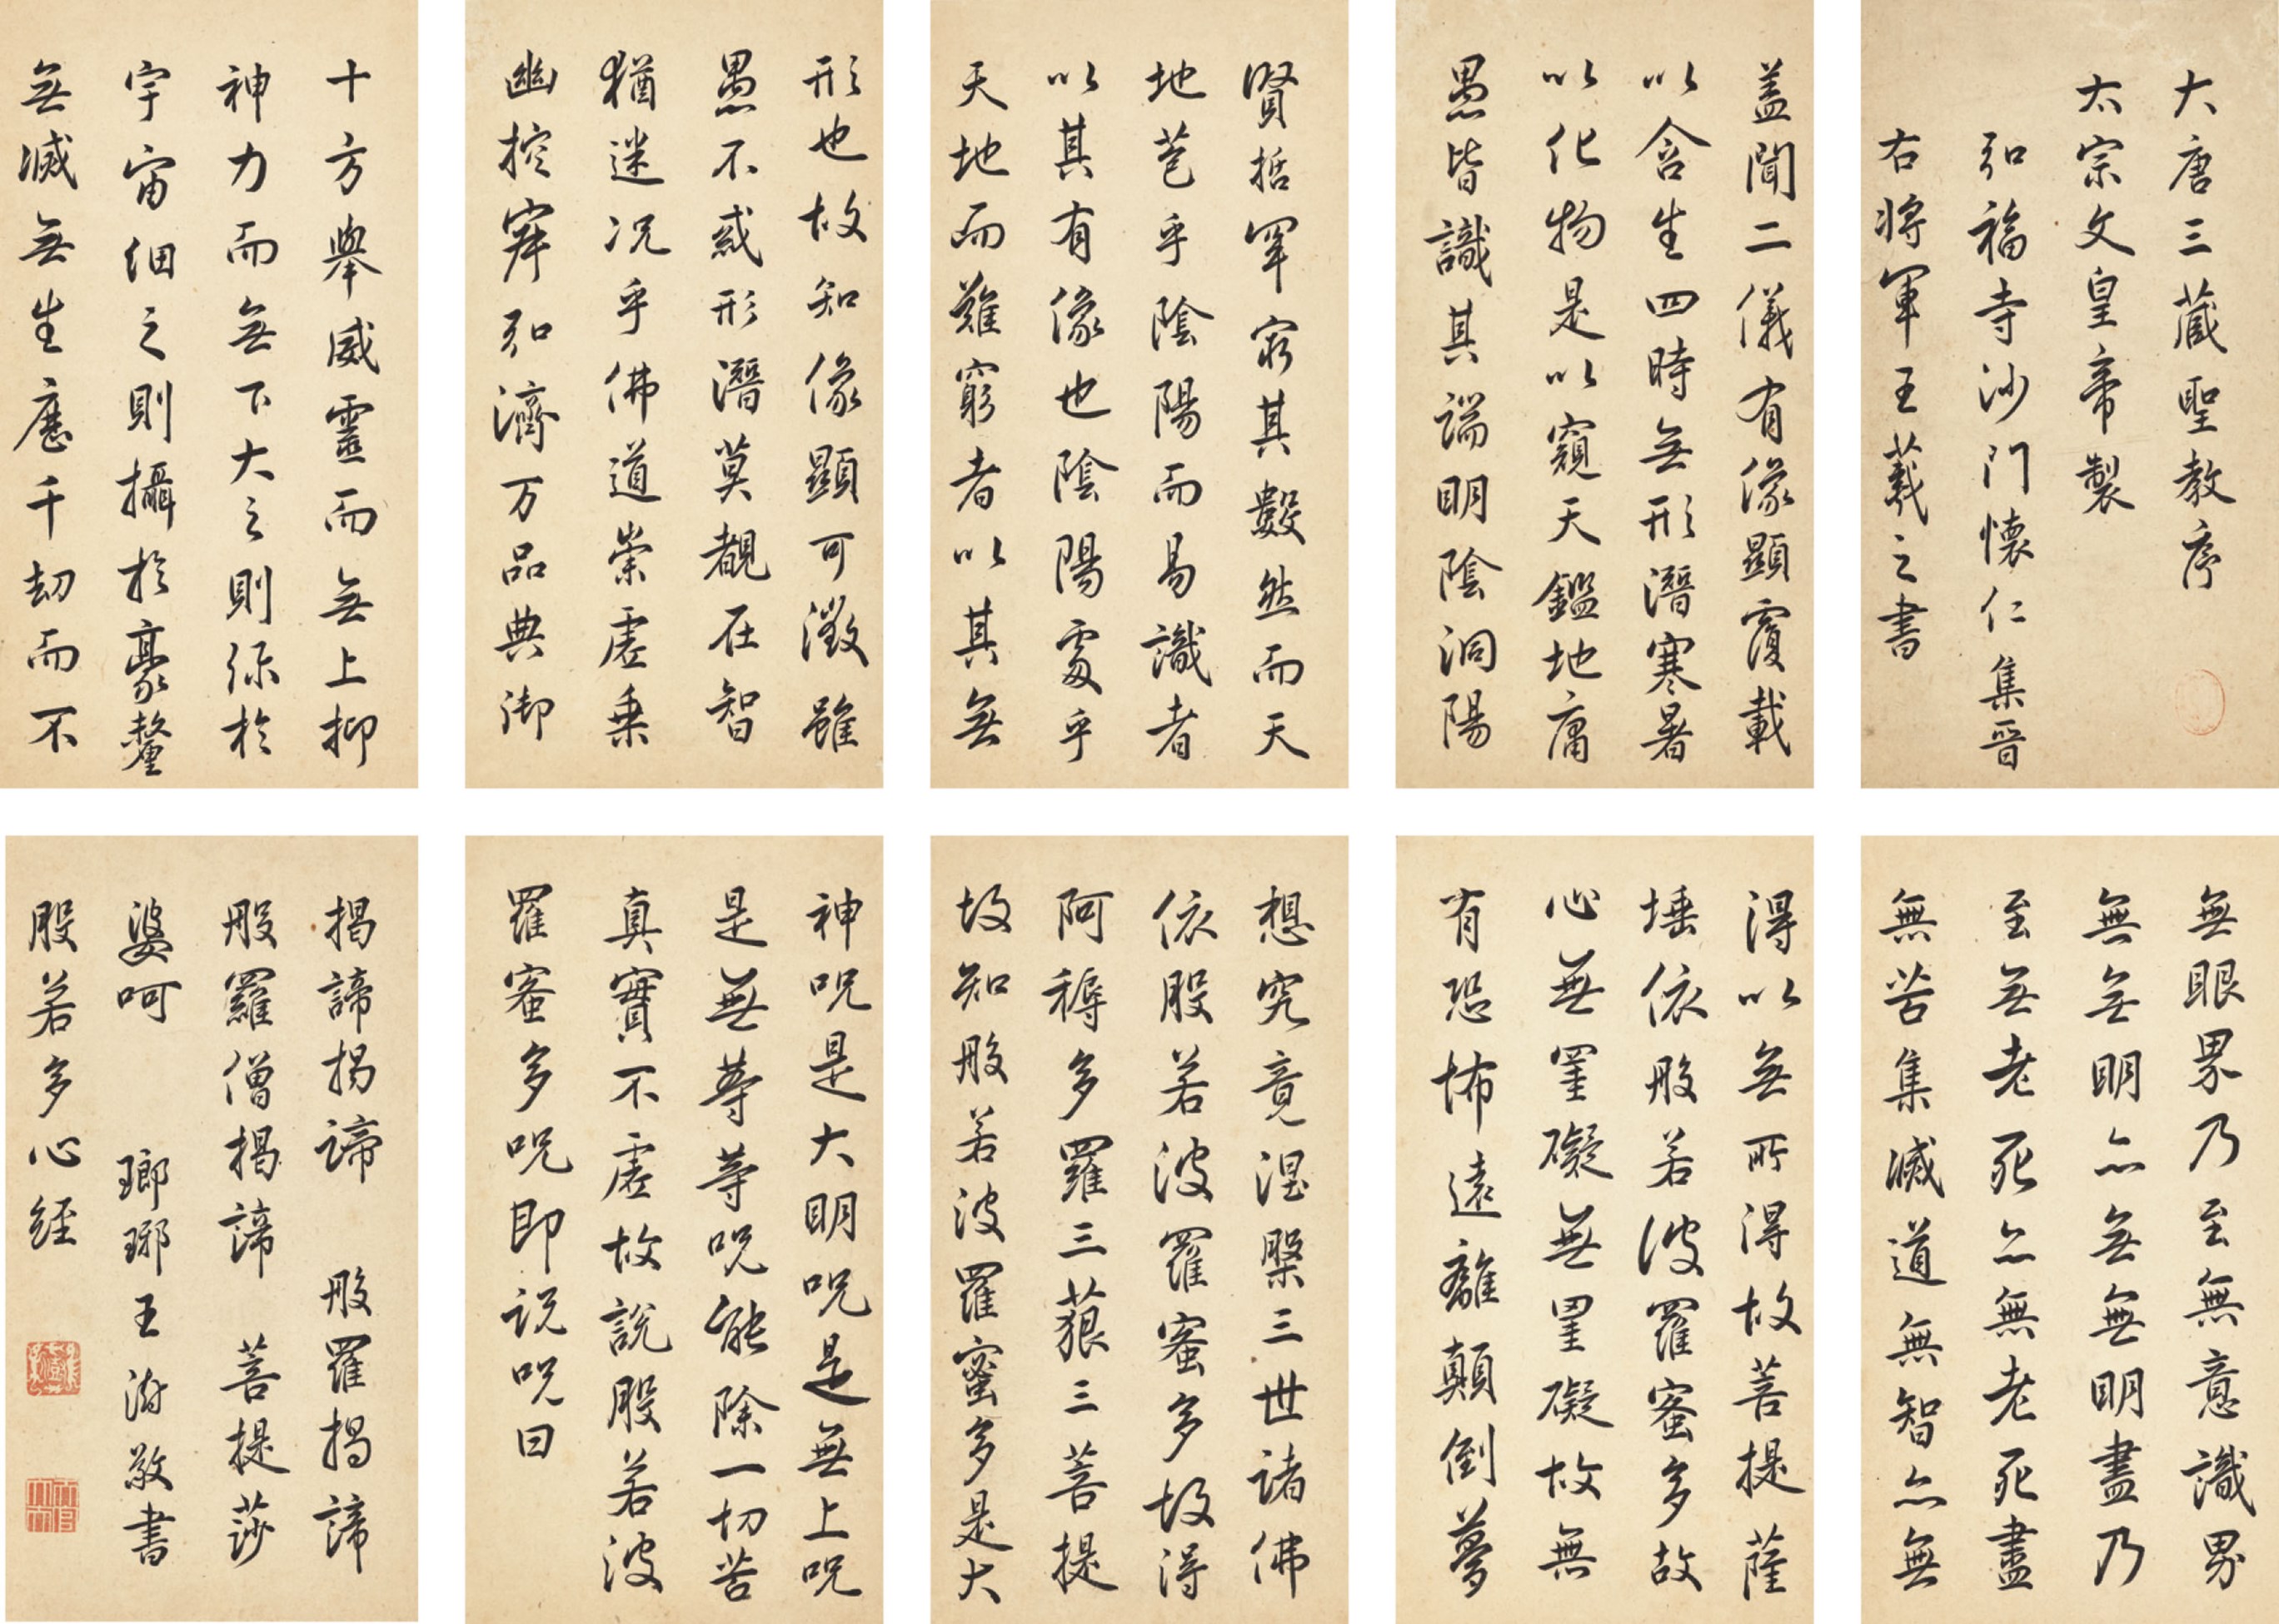 大唐三藏聖教序
太宗文皇帝製
弘福寺沙門懷仁集晉
右將軍王羲之書
蓋聞二儀有像顯覆載
以含生四時無形潛寒暑
以化物是以窺天鑑地庸
愚皆識其端明陰洞陽
賢哲罕窮其數然而天
地苞乎陰陽而易識者
以其有像也陰陽處乎
天地而難窮者以其無
形也故知像顯可徵雖
愚不惑形潛莫覩在智
猶迷況乎佛道崇虛乗
幽控寂弘濟万品典御
十方舉威靈而無上抑
神力而無下大之則弥於
宇宙細之則攝於豪釐
無滅無生歷千劫而不
無眼界乃至無意識界
無無明亦無無明盡乃
至無老死亦無老死盡
無苦集滅道無智亦無
得以無所得故菩提薩
埵依般若波羅蜜多故
心無罣礙無罣礙故無
有恐怖遠離顛倒夢
想究竟涅槃三世諸佛
依般若波羅蜜多故得
阿耨多羅三藐三菩提
故知般若波羅蜜多是大
神呪是大明呪是無上呪
是無等等呪能除一切苦
真實不虛故說般若波
羅蜜多呪即説呪曰
揭諦揭諦 般羅揭諦
般羅僧揭諦 菩提莎
婆呵 瑯琊王澍敬書
般若多心経